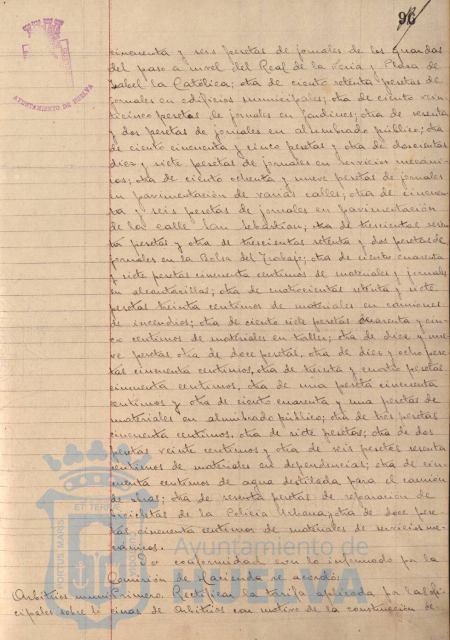 96
AYUNTAMIENTO DE HUELVA
cincuenta y seis pesetas de jornales de los guardas
del paso a nivel del Real de la Feria y Plaza de
Isabel la Católica; otra de ciento setenta pesetas de
jornales en edificios municipales; otra de ciento vein-
ticinco pesetas de jornales en Jardines; otra de sesenta
y dos pesetas de jornales en alumbrado público; otra
de ciento cincuenta y cinco pesetas y otra de doscientas
diez y siete pesetas de jornales en servicios mecáni-
cos; otra de ciento ochenta y nueve pesetas de jornales
en pavimentación de varias calles; otra de cincuen-
ta y seis pesetas de jornales en pavimentación
de la calle San Sebastian; otra de trescientas sesen-
ta pesetas y otra de trescientas setenta y dos pesetas de
jornales en la Bolsa del Trabajo; otra de ciento cuarenta
y siete pesetas cincuenta centimos de materiales y jornales
en alcantarillas; otra de cuatrocientas setenta y siete
pesetas treinta centimos de materiales en camiones
de incendios; otra de ciento siete pesetas cuarenta y cin-
co centimos de materiales en taller; otra de diez y nue-
ve pesetas otra de doce pesetas, otra de diez y ocho pese-
tas cincuenta centimos, otra de treinta y cuatro pesetas
cincuenta centimos, otra de una peseta cincuenta
centimos y otra de ciento cuarenta y una pesetas de
materiales en alumbrado público; otra de tres pesetas
cincuenta centimos, otra de siete pesetas; otra de dos
pesetas veinte centimos y otra de seis pesetas sesenta
centimos de materiales en dependencias; otra de cin-
cuenta centimos de agua destilada para el camion
de obras; otra de sesenta pesetas de reparacion de
bicicletas de la Policia Urbana; otra de doce pese-
tas cincuenta centimos de materiales de servicios me-
canicos.
De conformidad con lo informado por la
Comisión de Hacienda se acordó:
Arbitrios muni- Primero. Rectificar la tarifa aplicada por las Ofi-
cipales sobre lo cinas de Arbitrios con motivo de la construccion de-
Ayuntamiento de
HUELVA
PORTUS MARIS ET TERRAE